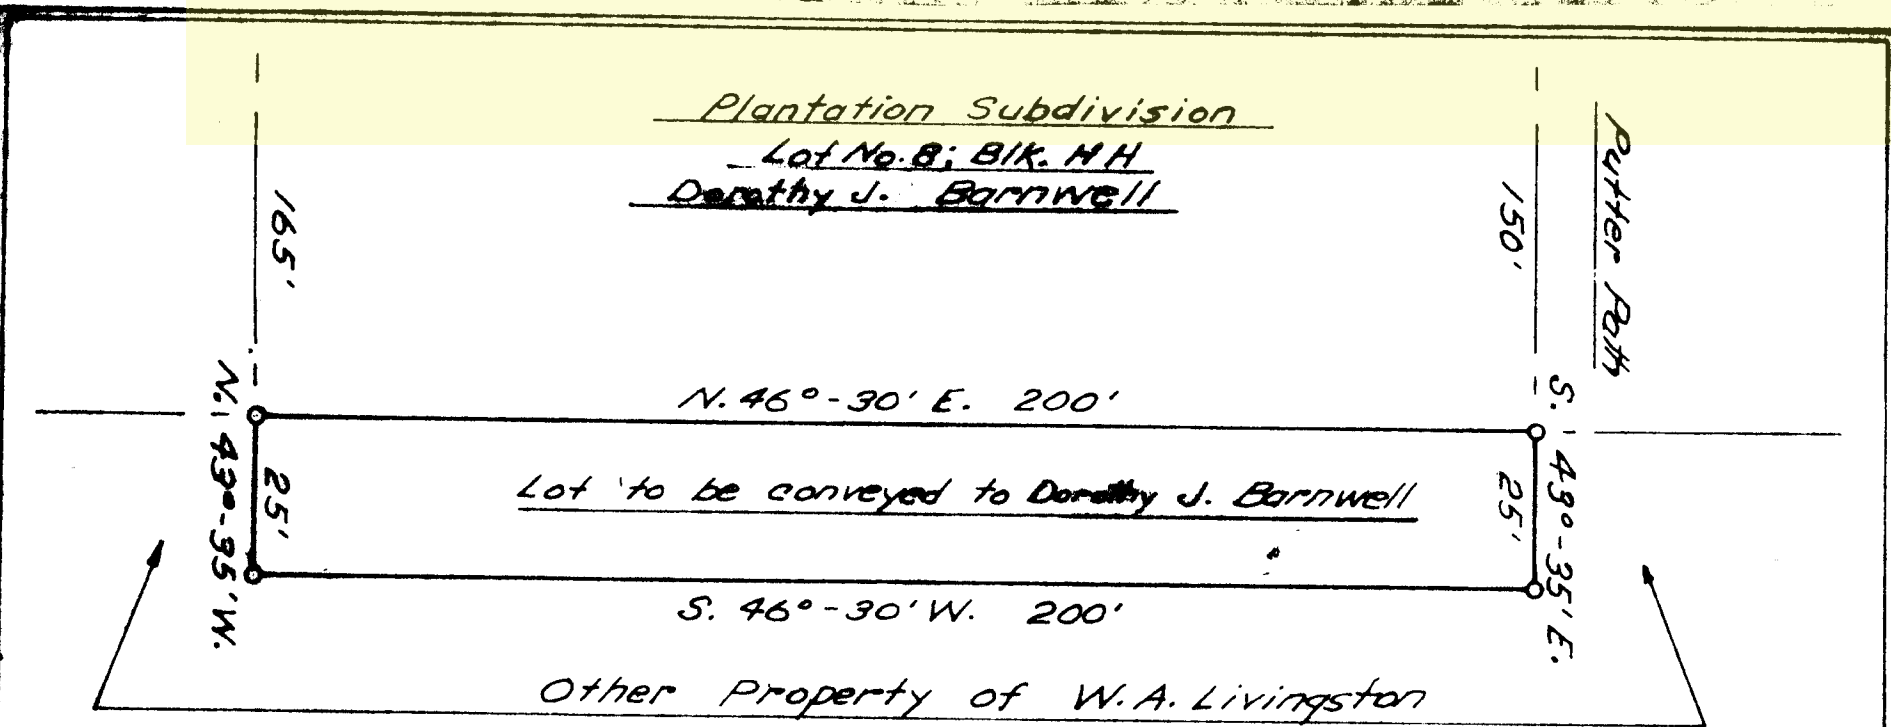 Plantation Subdivision
Lot No. 8; Blk. HH
Dorothy J. Barnwell
165'
150'
Putter Path
N. 46°-30' E. 200'
N. 43°-35' W.
25'
Lot to be conveyed to Dorothy J. Barnwell
25'
S. 43°-35' E.
S. 46°-30' W. 200'
Other Property of W.A. Livingston